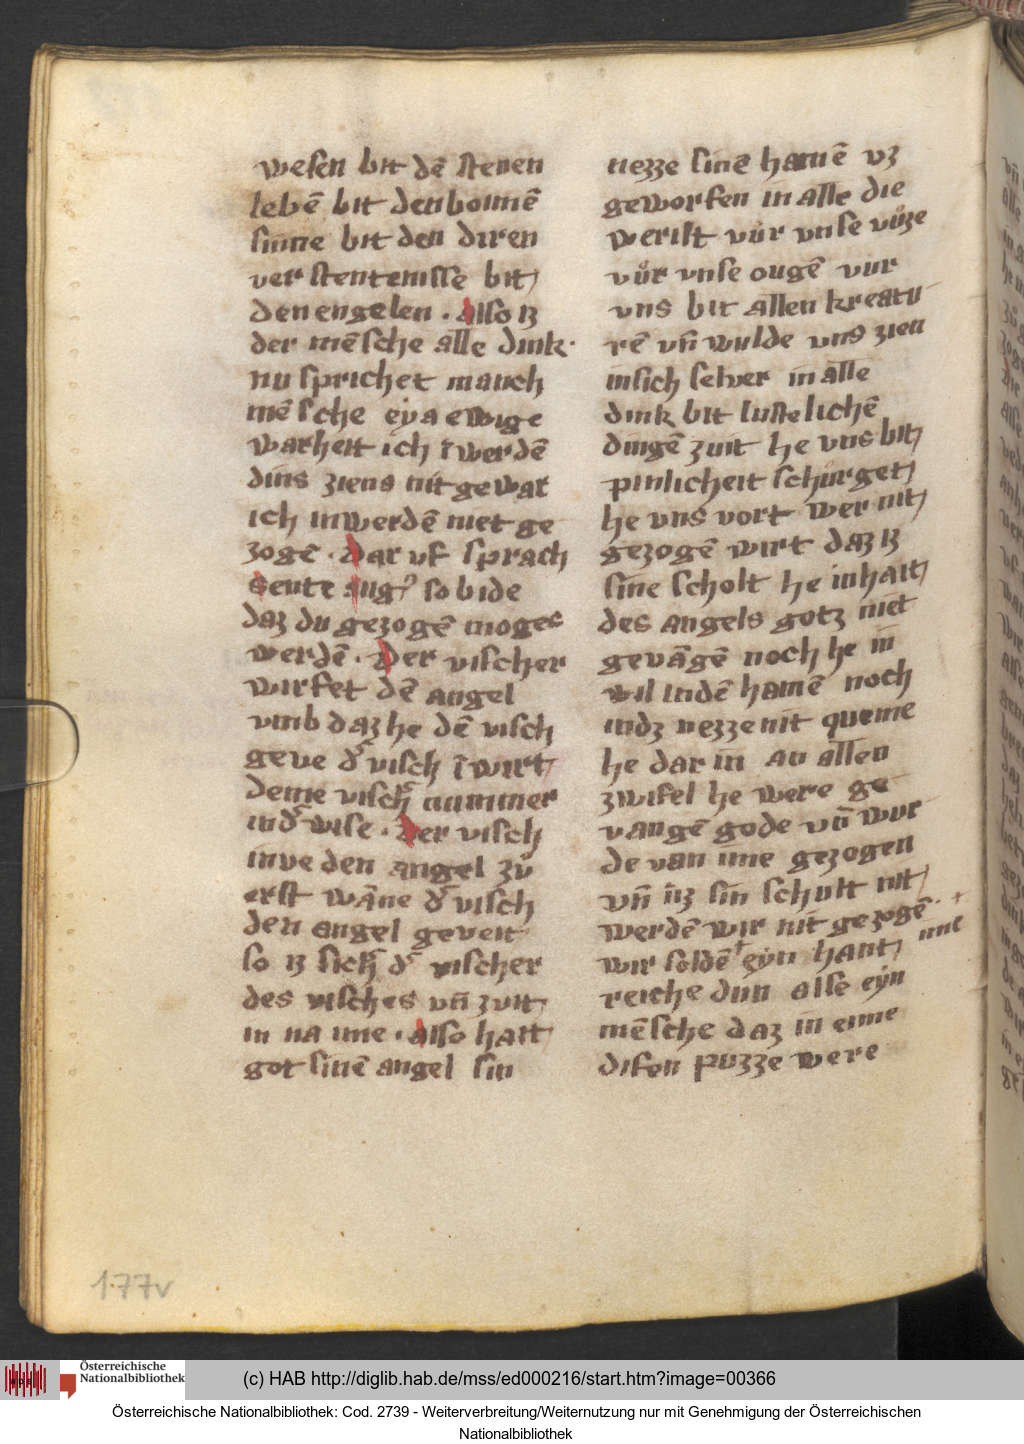 wesen bit dē stenen
lebē bit den boimē
sinne bit den diren
verstentenisse bit
den engelen . also iz
der mēsche alle dink.
nu sprichet manch
mēsche eya ewige
warheit ich īwerdē
dins ziens nit gewar
ich inwerdē niet ge
zogē . dar uf sprach
sente aug' so bide
daz du gezogē moges
werdē . der vischer
wirfet dē angel
vmb daz he dē visch
geve d' visch īwirt
deme visch' nummer
ind' wise . der visch
inve den angel zů
erst wāne d' visch
den angel geveit
so iz sich' d' vischer
des visches vn̄ zuit
in na ime . also hait
got sinē angel sin
nezze sinē hamē vz
geworfen in alle die
werilt vůr vnse vůze
vůr vnse ougē vur
vns bit allen kreatu
rē vn̄ wulde vns zien
insich selver in alle
dink bit lustelichē
dingē zuit he vns bit
pinlicheit schurget
he vns vort wer nit
gezogē wirt daz iz
sine scholt he inhait
des angels gotz niet
gevāgē noch he in
wil indē hamē noch
indz nezze nit queme
he dar in an allen
zwifel he were ge
vangē gode vn̄ wur
de van ime gezogen
vn̄ iz sin schult nit
werdē wir nit gezogē . +
wir soldē + eyn hant ime
reiche dun alse eyn
mēsche daz in eime
difen puzze were
177v
Österreichische
Nationalbibliothek
(c) HAB http://diglib.hab.de/mss/ed000216/start.htm?image=00366
Österreichische Nationalbibliothek: Cod. 2739 - Weiterverbreitung/Weiternutzung nur mit Genehmigung der Österreichischen
Nationalbibliothek